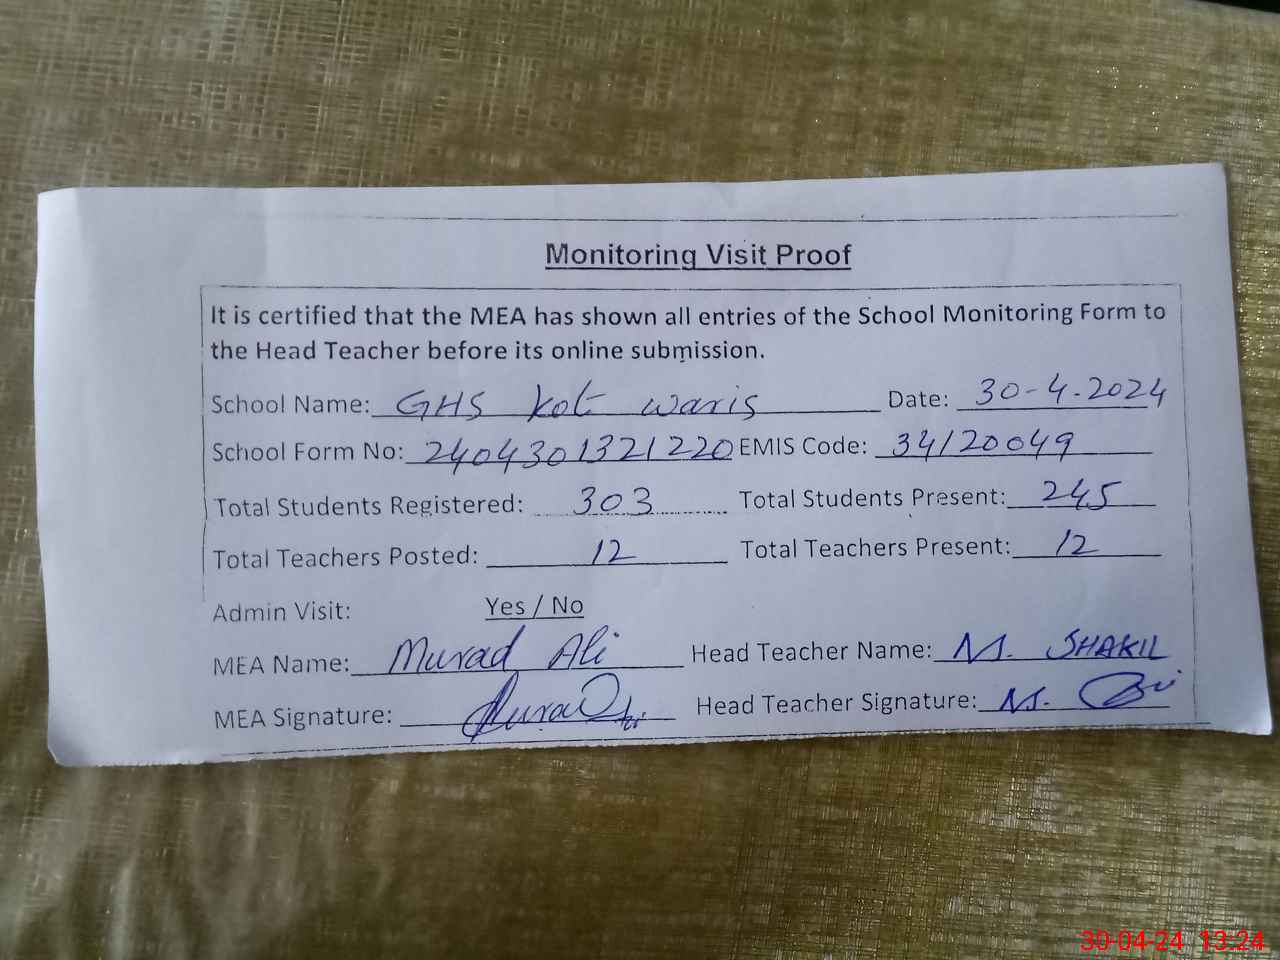 Monitoring Visit Proof
It is certified that the MEA has shown all entries of the School Monitoring Form to
the Head Teacher before its online submission.
School Name: GHS Kot waris Date: 30-4-2024
School Form No: 2404301321220 EMIS Code: 34120049
Total Students Registered: 303 Total Students Present: 245
Total Teachers Posted: 12 Total Teachers Present: 12
Admin Visit: Yes / No
MEA Name: Murad Ali Head Teacher Name: M. SHAKIL
MEA Signature: Head Teacher Signature: M.
30-04-24 13:24